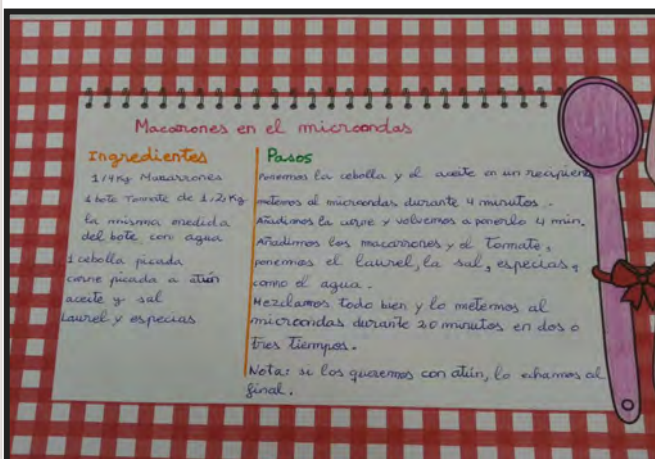 Macarrones en el microondas
Ingredientes
1/4 Kg Macarrones
1 bote Tomate de 1,2 Kg
la misma medida
del bote con agua
1 cebolla picada
carne picada o atún
aceite y sal
Laurel y especias
Pasos
Ponemos la cebolla y el aceite en un recipien
metemos al microondas durante 4 minutos.
Añadimos la carne y volvemos a ponerlo 4 min.
Añadimos los macarrones y el Tomate,
ponemos el laurel, la sal, especias,
como el agua.
Mezclamos todo bien y lo metemos al
microondas durante 20 minutos en dos o
tres tiempos.
Nota: si los queremos con atún, lo echamos al
final.